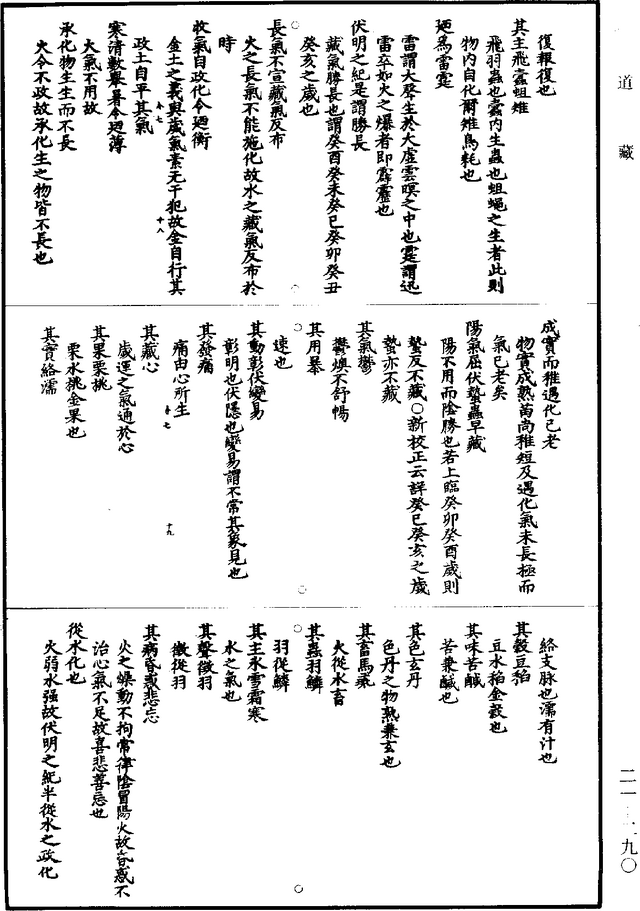 道藏
復報復也
其主飛蠹蛆雉
飛羽蟲也蠹内生蟲也蛆蠅之生者此則
物内自化爾雉鳥耗也
廼為雷霆
雷謂大聲生於大虛雲暝之中也霆謂迅
雷卒如火之爆者即霹靂也
伏明之紀是謂勝長
藏氣勝長也謂癸酉癸未癸巳癸卯癸丑
癸亥之歲也
長氣不宣藏氣反布
火之長氣不能施化故水之藏氣反布於
時
收氣自政化令廼衡
金土之義與歲氣素无干犯故金自行其
政土自平其氣
寒清數舉暑令廼薄
火氣不用故
承化物生生而不長
火令不政故承化生之物皆不長也
成實而稚遇化已老
物實成熟苗尚稚短及遇化氣未長極而
氣已老矣
陽氣屈伏蟄蟲早藏
陽不用而陰勝也若上臨癸卯癸酉歲則
蟄反不藏○新校正云詳癸巳癸亥之歲
蟄亦不藏
其氣鬱
鬱燠不舒暢
其用暴
速也
其動彰伏變易
彰明也伏隱也變易謂不常其象見也
其發痛
痛由心所生
其藏心
歲運之氣通於心
其果栗桃
栗水桃金果也
其實絡濡
絡支脉也濡有汁也
其穀豆稻
豆水稻金穀也
其味苦鹹
苦兼鹹也
其色玄丹
色丹之物熟兼玄也
其畜馬彘
火從水畜
其蟲羽鱗
羽從鱗
其主冰雪霜寒
水之氣也
其聲徵羽
徵從羽
其病昏惑悲忘
火之躁動不拘常律陰冒陽火故昏惑不
治心氣不足故喜悲善忘也
從水化也
火弱水强故伏明之紀半從水之政化
二一
九〇